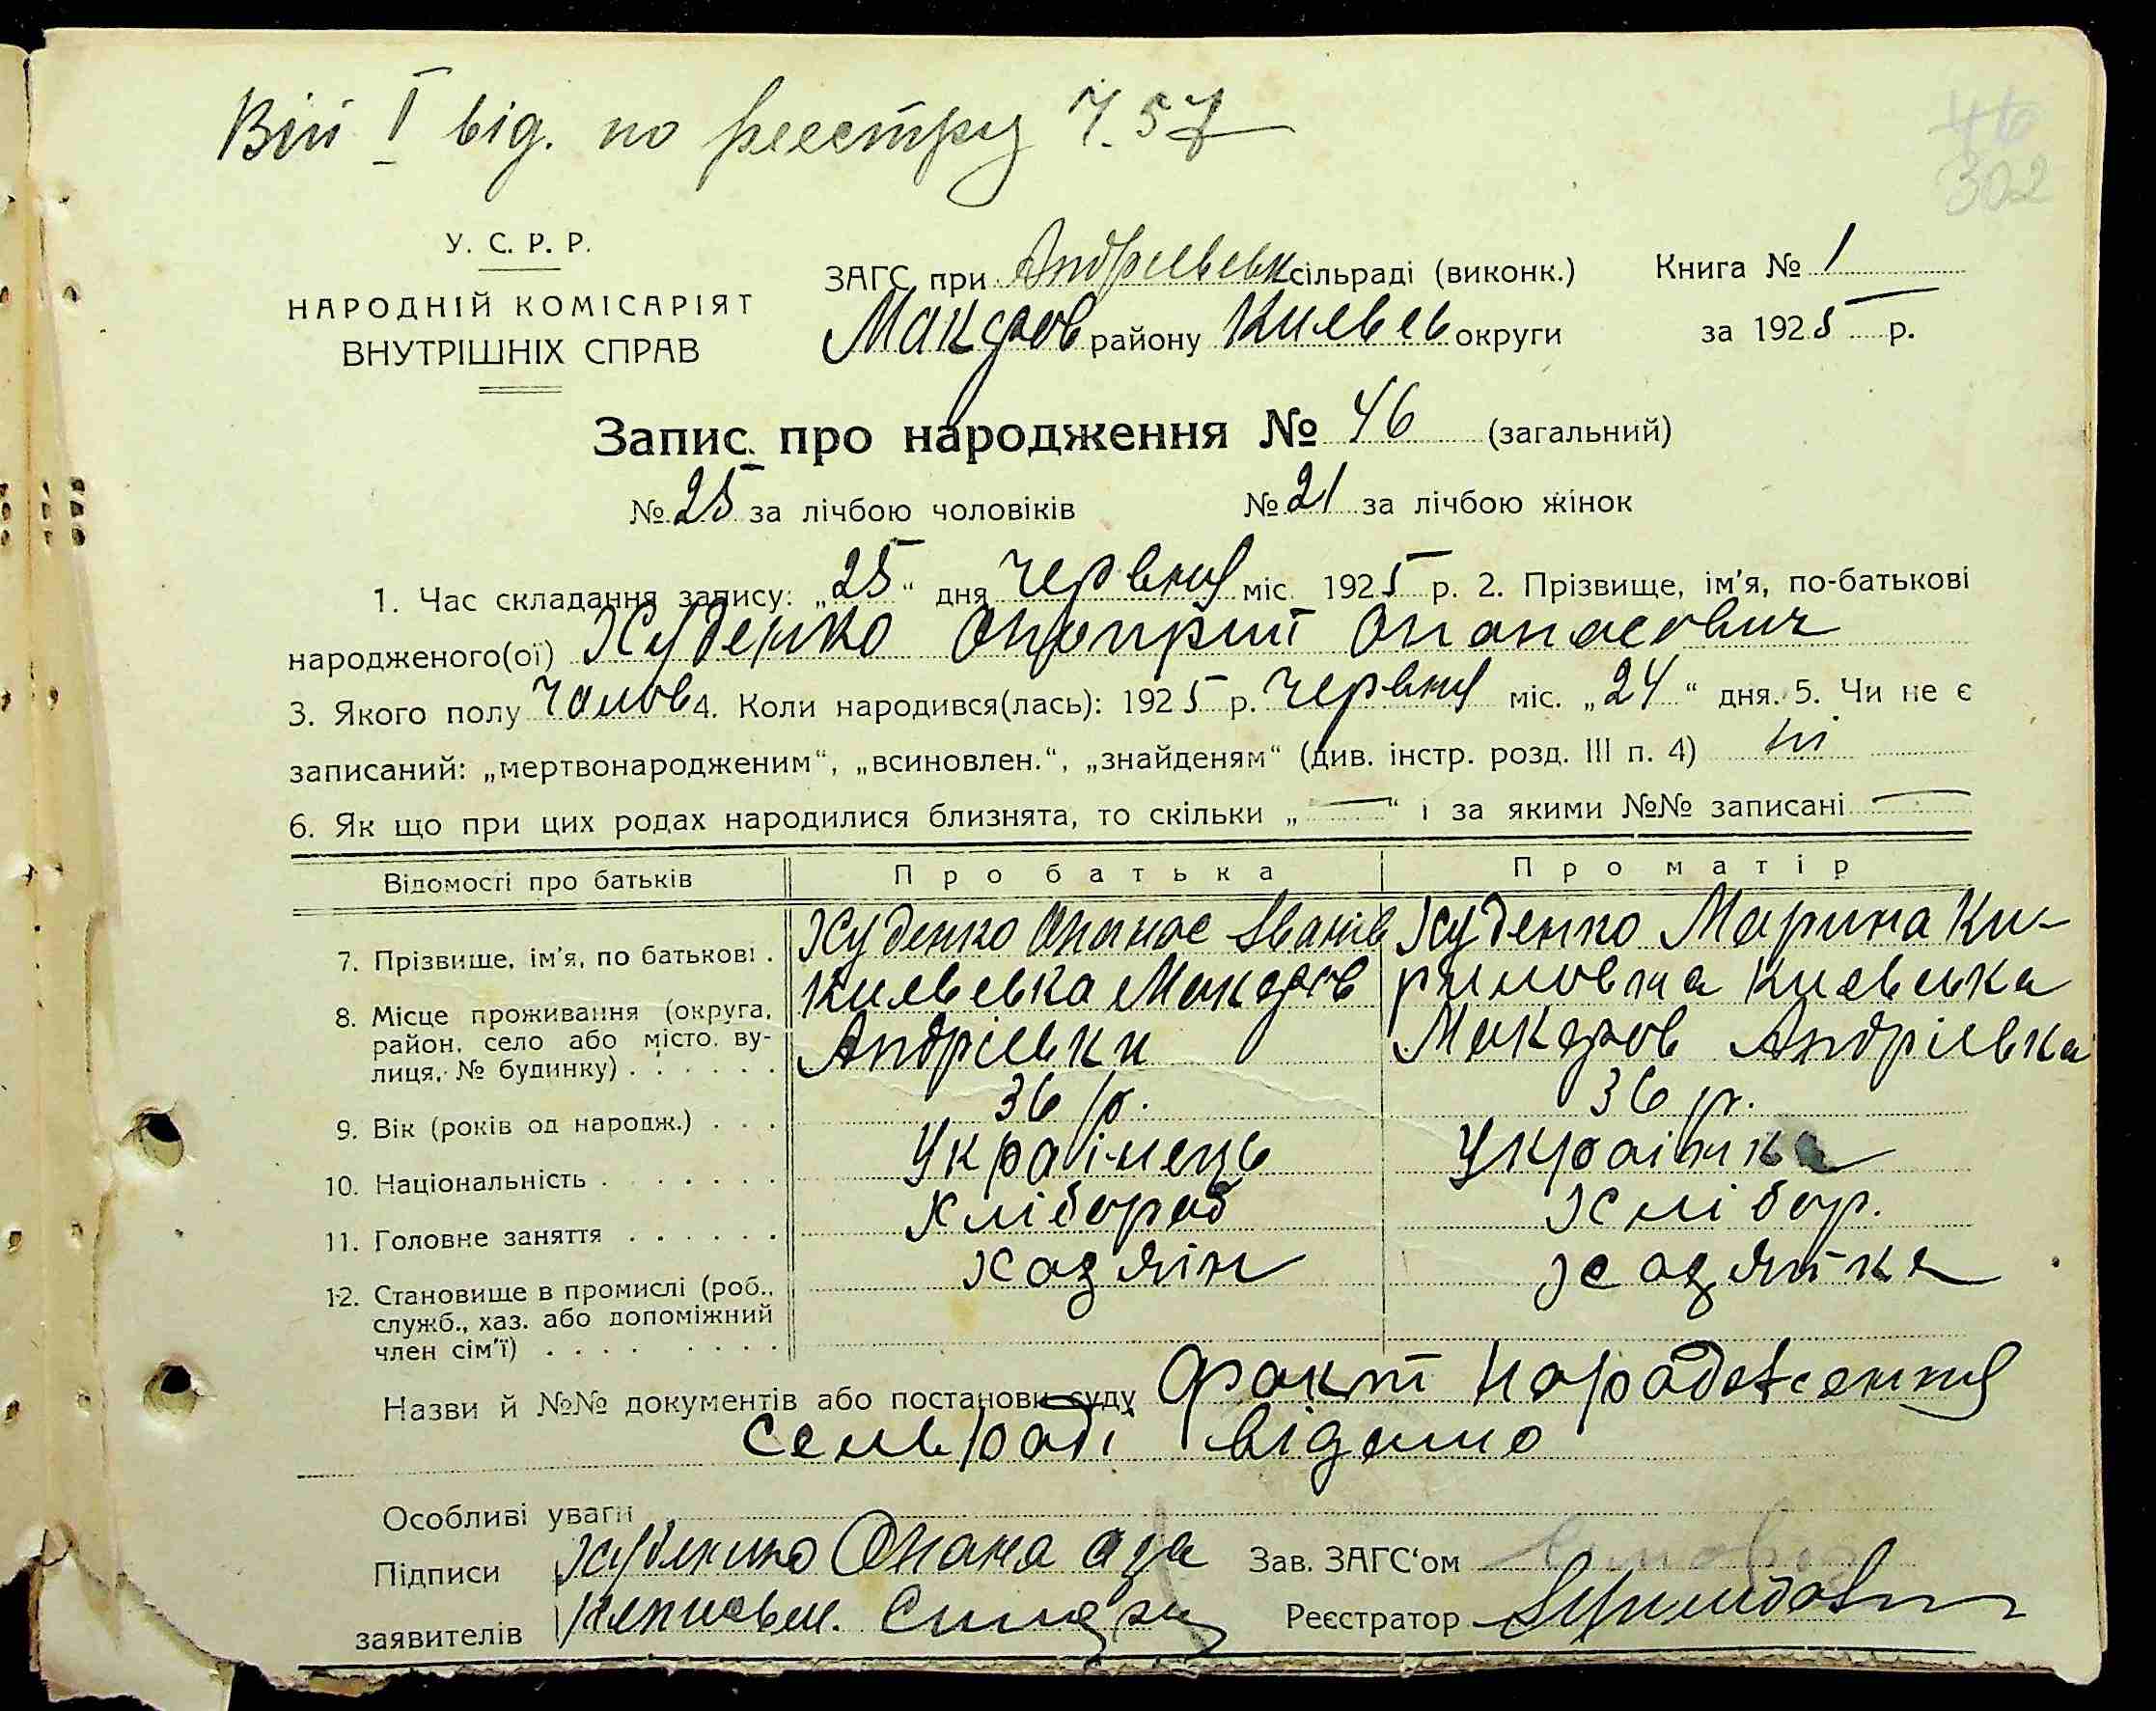 Вип І від. по реестру Ч. 57
46
302
У. С. Р. Р.
НАРОДНІЙ КОМІСАРІЯТ
ВНУТРІШНІХ СПРАВ
ЗАГС при Андріевськ сільраді (виконк.)
Макаров району Киевськ округи
Книга № 1
за 1925 р.
Запис про народження № 46 (загальний)
№ 25 за лічбою чоловіків № 21 за лічбою жінок
1. Час складання запису: „25“ дня червня міс. 1925 р. 2. Прізвище, ім'я, по-батькові
народженого(ої) Худенко Онопрій Опанасович
3. Якого полу чолов 4. Коли народився(лась): 1925 р. червня міс. „24“ дня. 5. Чи не є
записаний: „мертвонародженим“, „всиновлен.“, „знайденям“ (див. інстр. розд. III п. 4) ні
6. Як що при цих родах народилися близнята, то скільки „—“ і за якими №№ записані —
Відомості про батьків Про батька Про матір
7. Прізвище, ім'я, по батькові . Худенко Опанас Іванів Худенко Марина Ки-
8. Місце проживання (округа, Киевська Макаров риловна Киевська
район, село або місто, ву- Андріевка Макаров Андріевка
лиця, № будинку) . . . . . .
9. Вік (років од народж.) . . . 36 р. 36 р.
10. Національність . . . . . . . Українець Українка
11. Головне заняття . . . . . . Хлібороб Хлібор.
12. Становище в промислі (роб., хазяін хазяйка
служб., хаз. або допоміжний
член сім'ї) . . . . . . . .
Назви й №№ документів або постанови суду Факт народження
сельраді відомо
Особливі уваги
Підписи Худенко Опана а за
заявителів неписьм.
Зав. ЗАГС'ом
Реєстратор